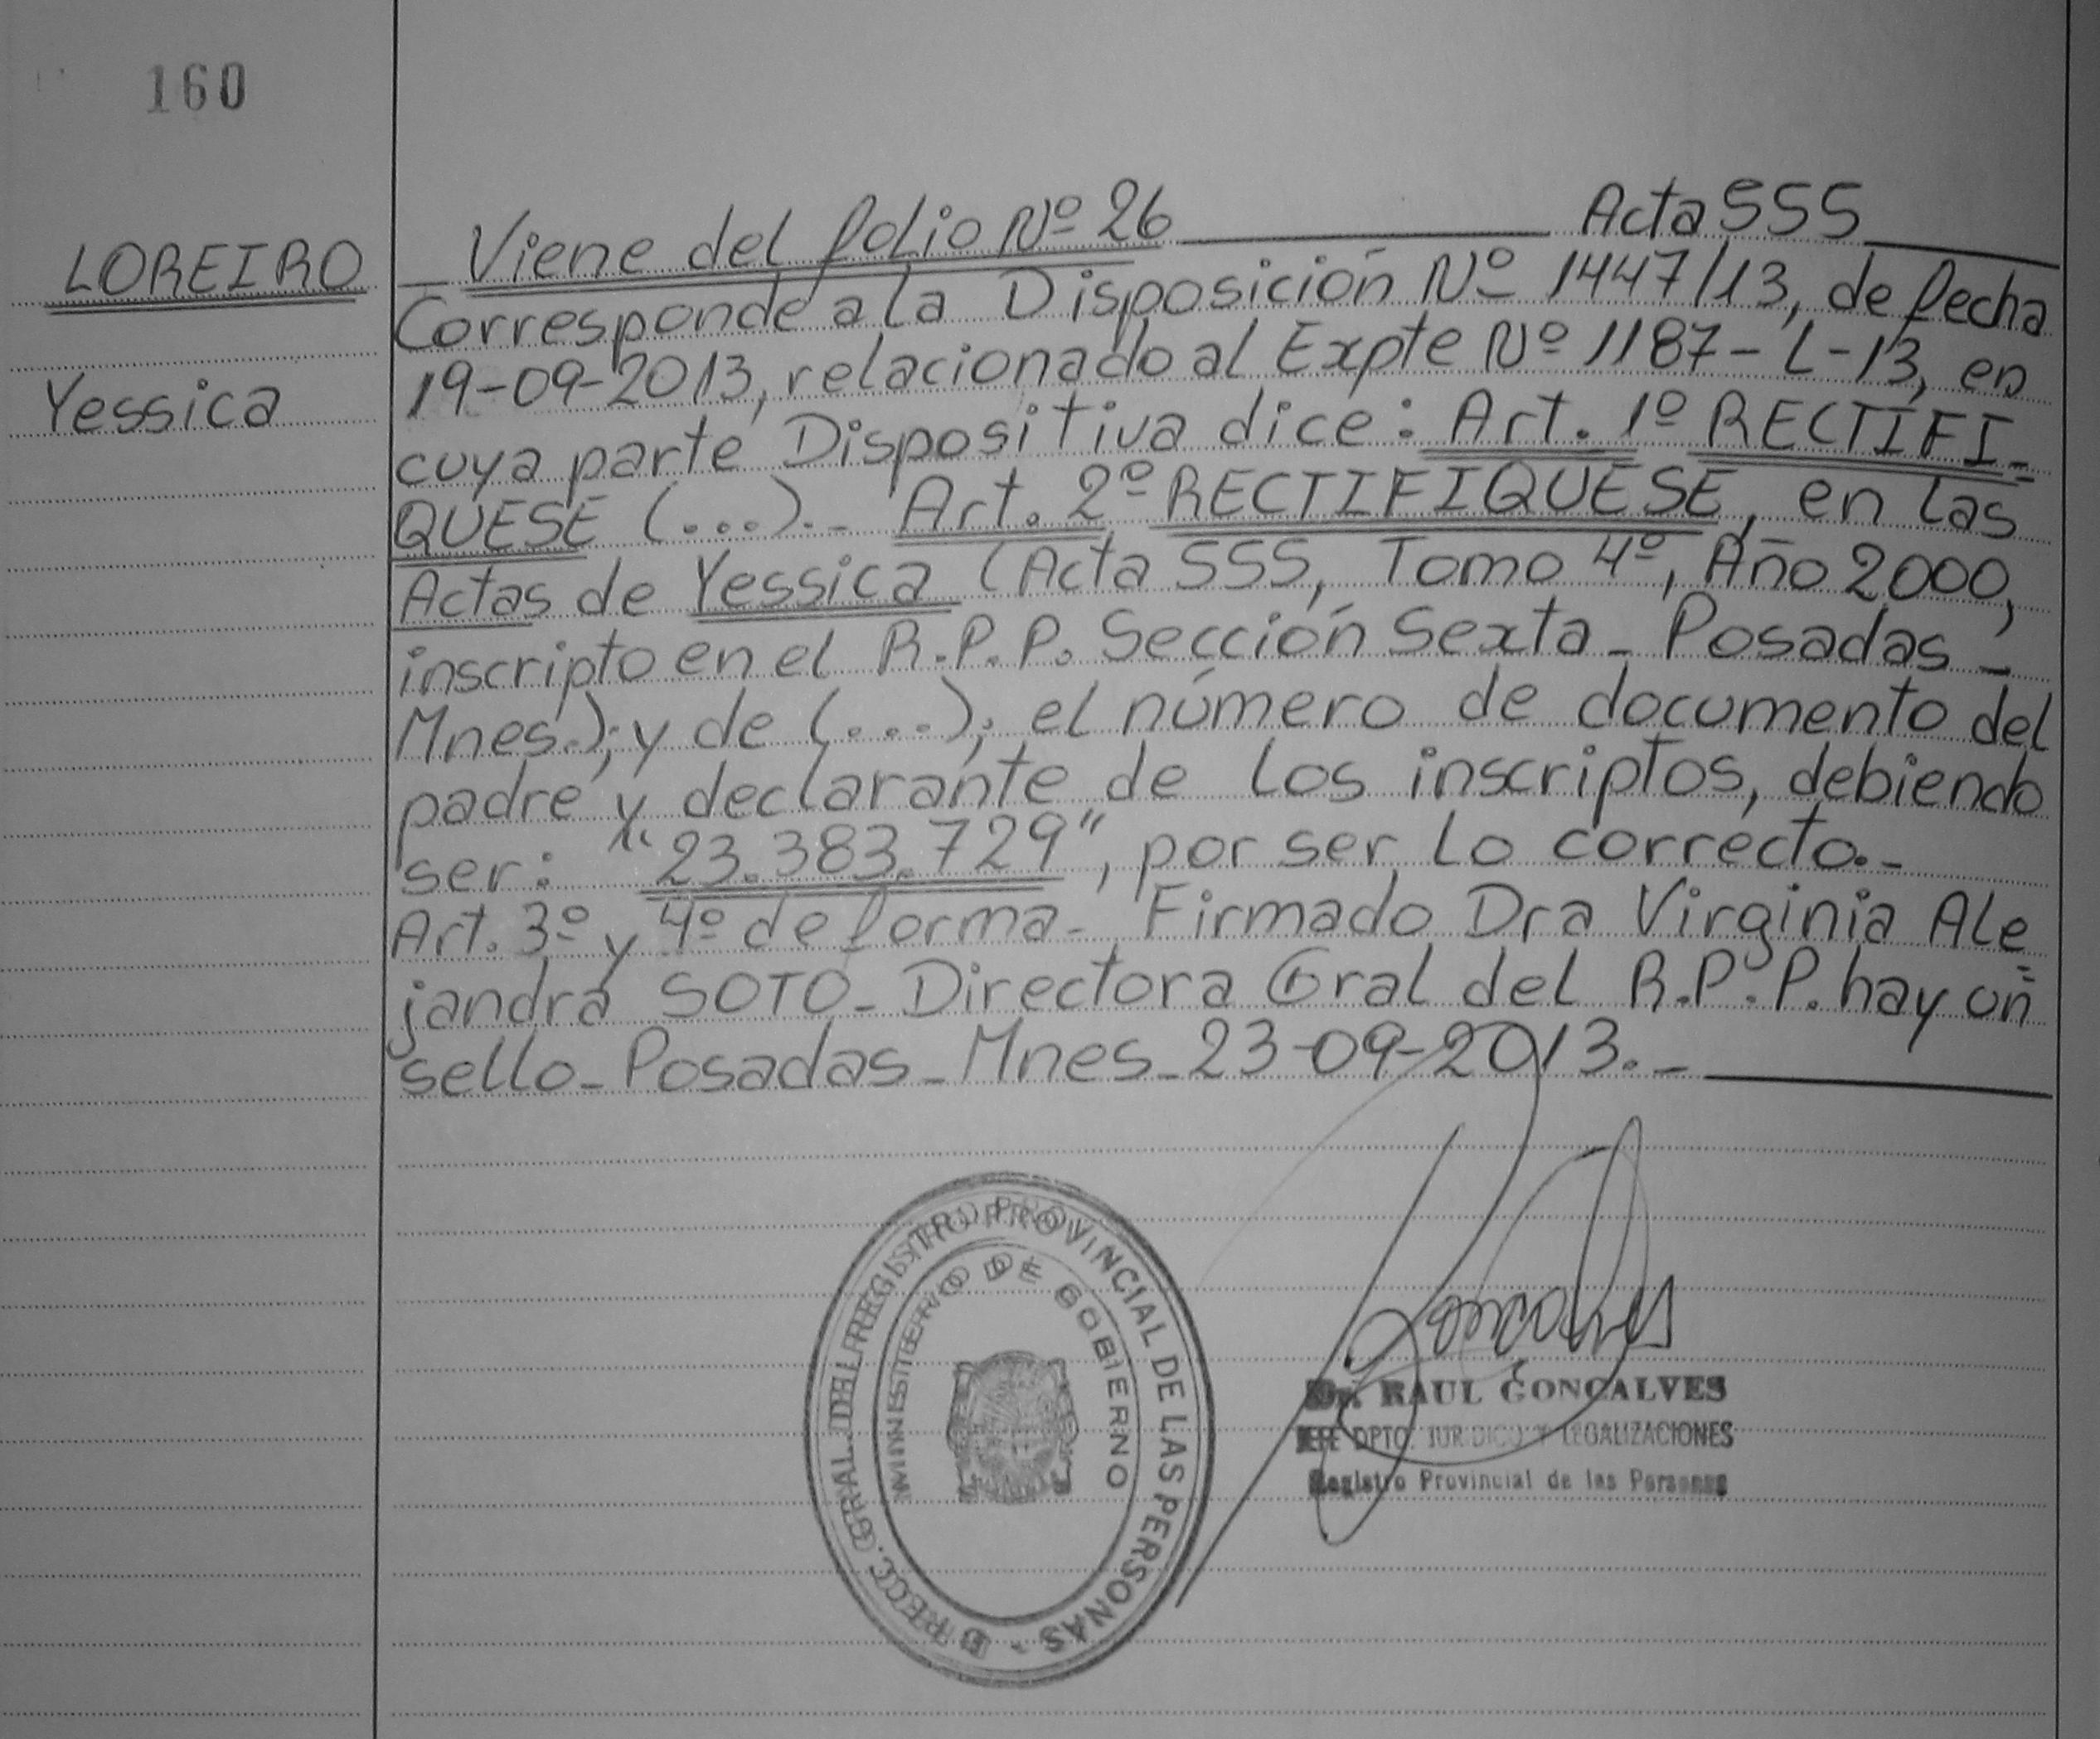 160
LOREIRO
Yessica
Viene del folio Nº 26 Acta 555
Corresponde a la Disposición Nº 1447/13, de fecha
19-09-2013, relacionado al Expte Nº 1187-L-13, en
cuya parte Dispositiva dice: Art. 1º RECTIFI-
QUESE (...).- Art. 2º RECTIFIQUESE, en las
Actas de Yessica (Acta 555, Tomo 4º, Año 2000,
inscripto en el R.P.P. Sección Sexta - Posadas -
Mnes.); y de (...); el número de documento del
padre y declarante de los inscriptos, debiendo
ser: "23.383.729", por ser lo correcto.-
Art. 3º y 4º de forma - Firmado Dra Virginia Ale
jandra SOTO - Directora Gral del R.P.P. hay un
sello - Posadas - Mnes - 23-09-2013.-
DIRECC. GRAL. DEL REGISTRO PROVINCIAL DE LAS PERSONAS -
MINISTERIO DE GOBIERNO
Goncalves
Dr. RAUL GONCALVES
JEFE DPTO. JURIDICO Y LEGALIZACIONES
Registro Provincial de las Personas